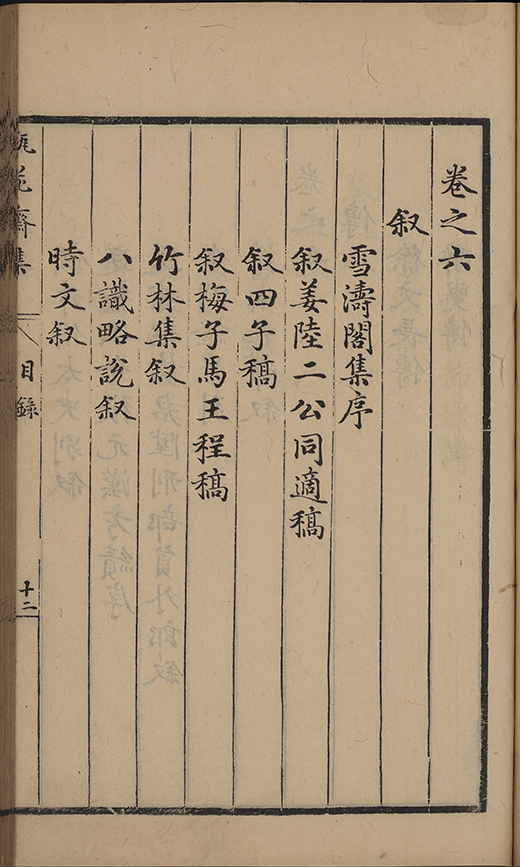 卷之六
叙
雪濤閣集序
叙姜陸二公同適稿
叙四子稿
叙梅子馬王程稿
竹林集叙
八識略說叙
時文叙
瓶花齋集
目錄
十二